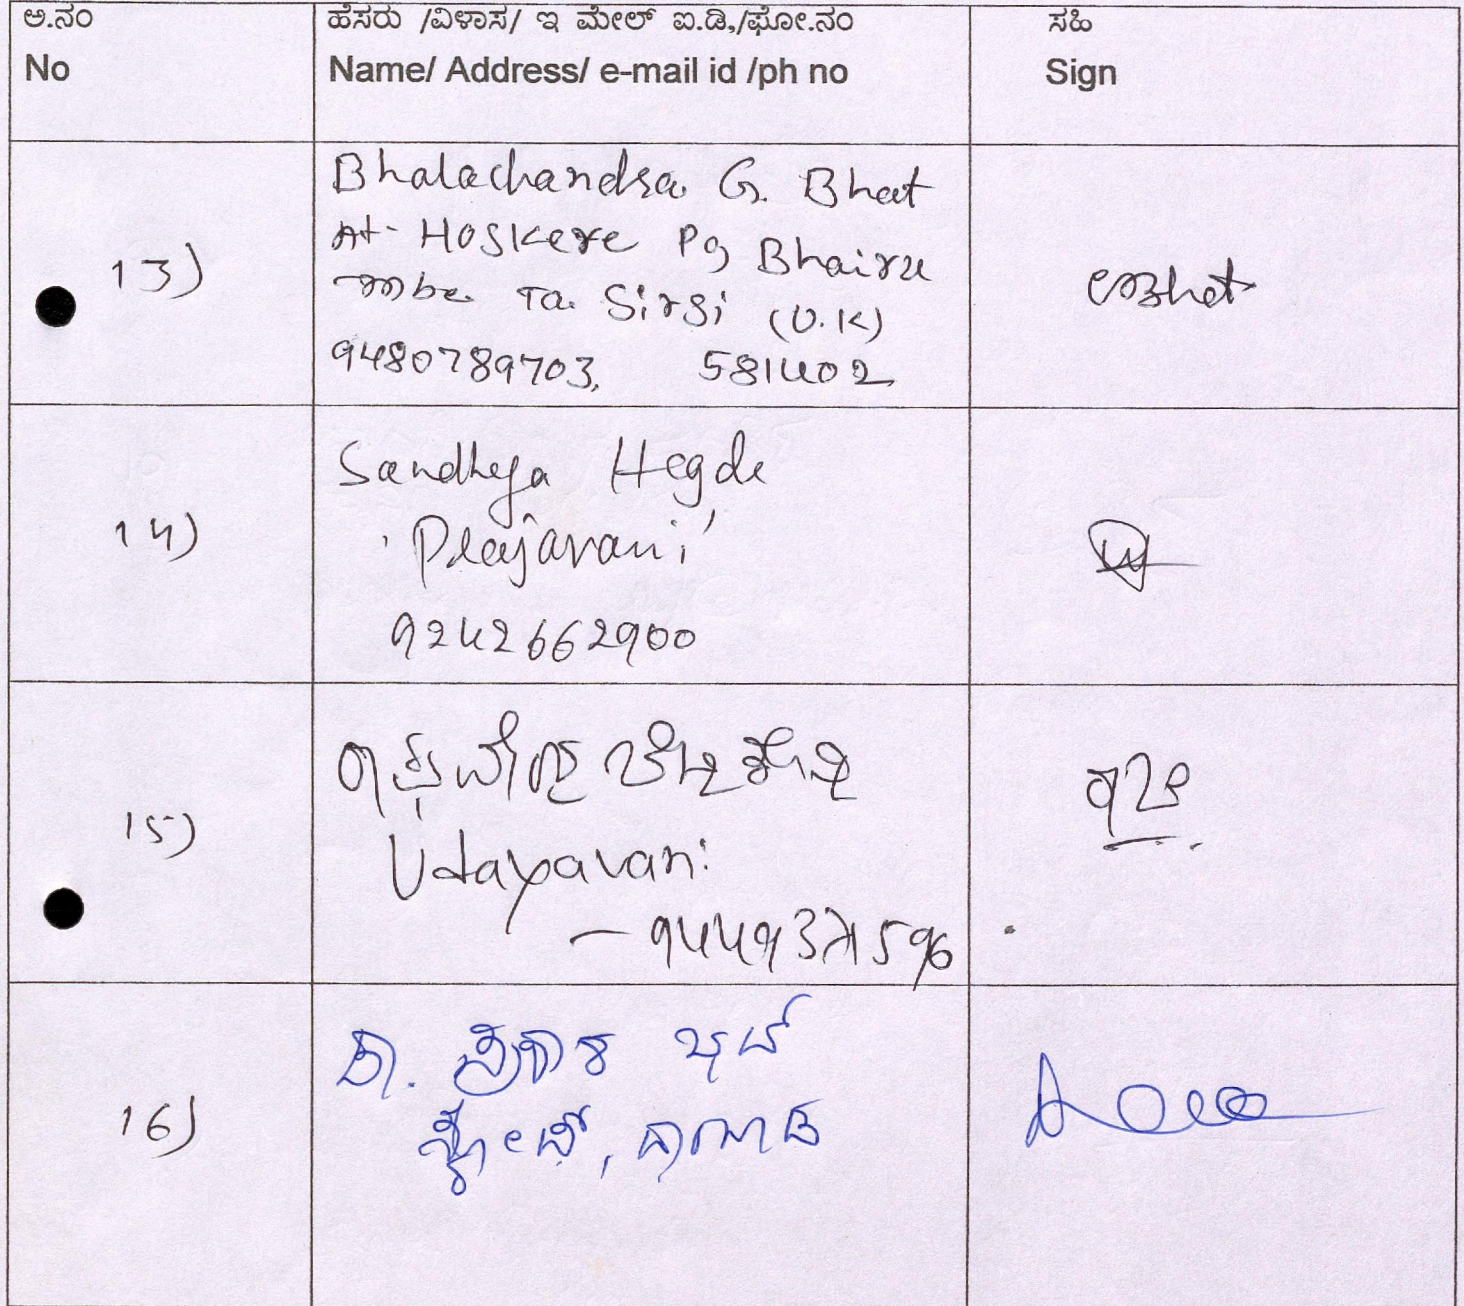 ಅ.ನಂ
ಹೆಸರು /ವಿಳಾಸ/ ಇ ಮೇಲ್ ಐ.ಡಿ,/ಫೋ.ನಂ
ಸಹಿ
No
Name/ Address/ e-mail id /ph no
Sign
13)
Bhalachandra G. Bhat
At- Hoskere Po Bhairu
mbe Ta. Sirsi (U.K)
9480789703, 581402
Bhat
14)
Sandhya Hegde
'Prajavani'
9242662900
15)
Udayavani
- 9449371596
16)
ಡಾ. ಪ್ರಕಾಶ ಭಟ್
ಸ್ಕೋಪ್, ಧಾರವಾಡ